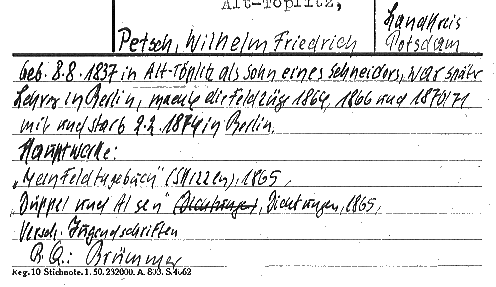 Alt-Töplitz,
Landkreis
Potsdam
Petsch, Wilhelm Friedrich
geb. 8.8.1837 in Alt-Töplitz als Sohn eines Schneiders, war später
Lehrer in Berlin, machte die Feldzüge 1864, 1866 und 1870/71
mit und starb 2.2.1874 in Berlin.
Hauptwerke:
„Mein Feldtagebuch" (Skizzen), 1865,
„Düppel und Alsen" (Dichtungen), Dichtungen, 1865,
Versch. Jugendschriften
B.Q.: Brümmer
Reg. 10 Stichnote. 1. 50. 232000. A. 803. S. 4062